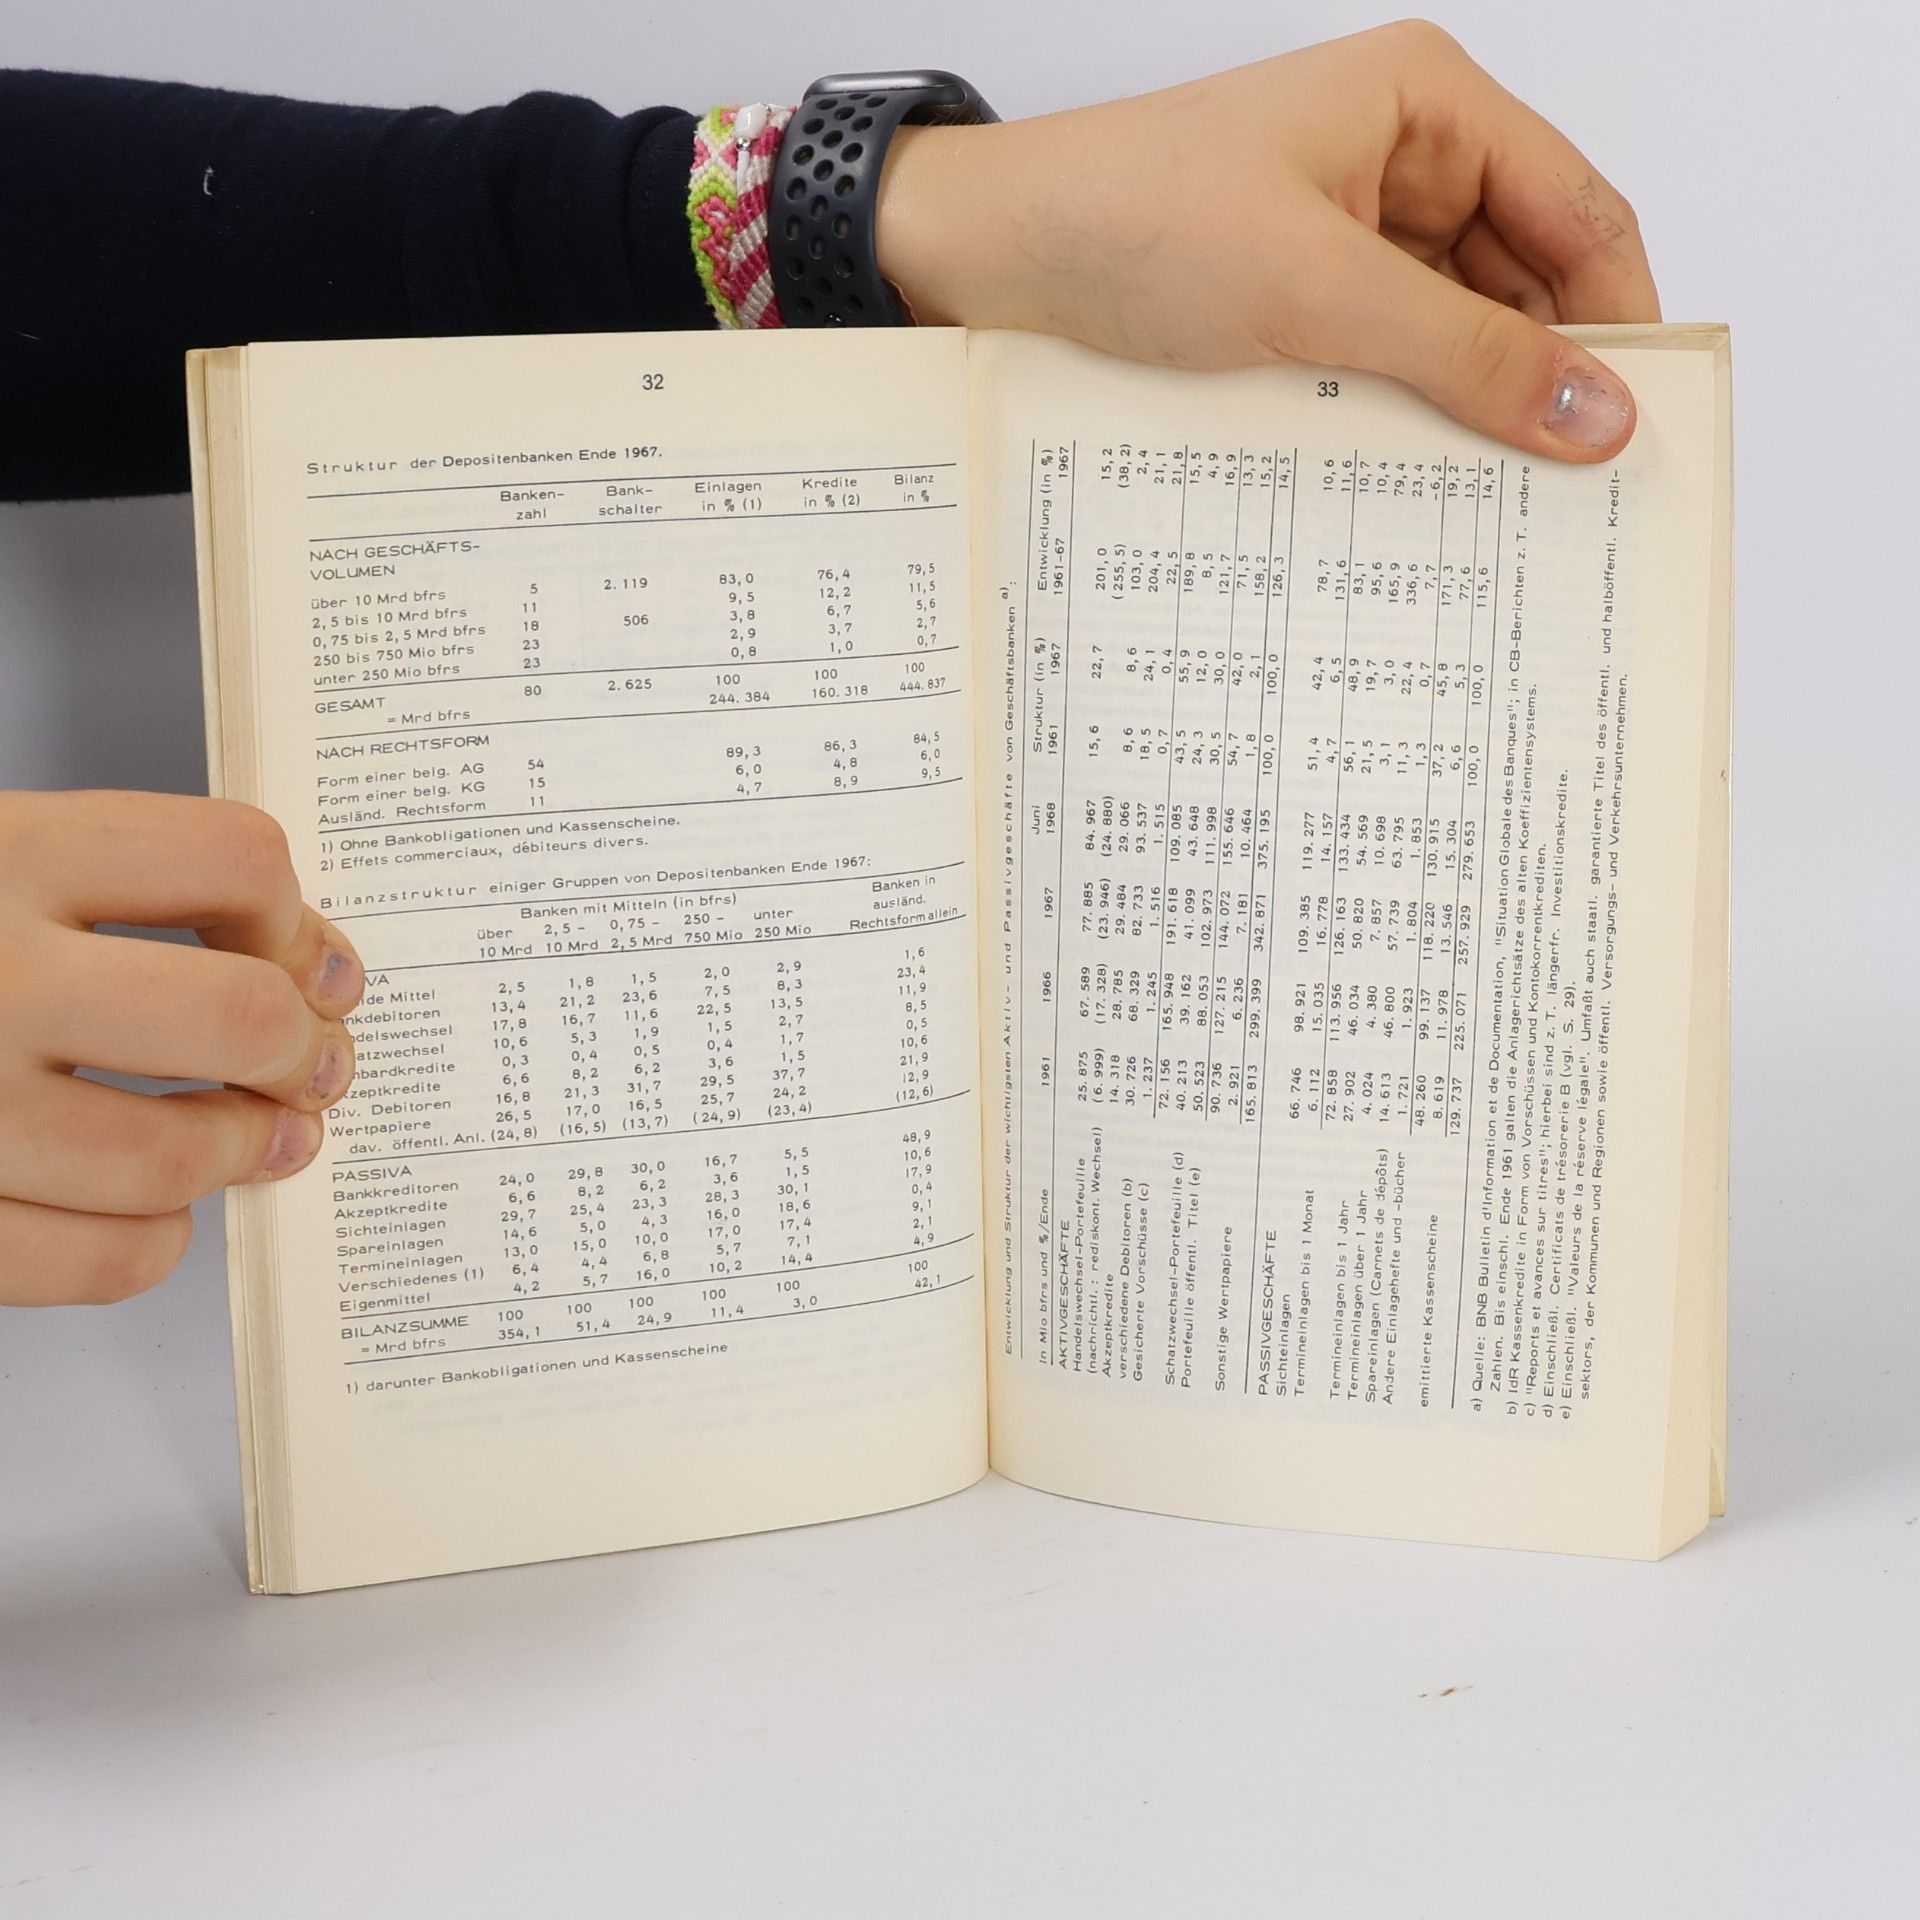 32
Struktur der Depositenbanken Ende 1967.
Banken- Bank- Einlagen Kredite Bilanz
zahl schalter in % (1) in % (2) in %
NACH GESCHÄFTS-
VOLUMEN
über 10 Mrd bfrs 5 2. 119 83, 0 76, 4 79, 5
2, 5 bis 10 Mrd bfrs 11 9, 5 12, 2 11, 5
0, 75 bis 2, 5 Mrd bfrs 18 506 3, 8 6, 7 5, 6
250 bis 750 Mio bfrs 23 2, 9 3, 7 2, 7
unter 250 Mio bfrs 23 0, 8 1, 0 0, 7
GESAMT 80 2. 625 100 100 100
= Mrd bfrs 244. 384 160. 318 444. 837
NACH RECHTSFORM
Form einer belg. AG 54 89, 3 86, 3 84, 5
Form einer belg. KG 15 6, 0 4, 8 6, 0
Ausländ. Rechtsform 11 4, 7 8, 9 9, 5
1) Ohne Bankobligationen und Kassenscheine.
2) Effets commerciaux, débiteurs divers.
Bilanzstruktur einiger Gruppen von Depositenbanken Ende 1967:
Banken mit Mitteln (in bfrs) Banken in
über 2, 5 - 0, 75 - 250 - unter ausländ.
10 Mrd 10 Mrd 2, 5 Mrd 750 Mio 250 Mio Rechtsform allein
VA
de Mittel 2, 5 1, 8 1, 5 2, 0 2, 9 1, 6
nkdebitoren 13, 4 21, 2 23, 6 7, 5 8, 3 23, 4
delswechsel 17, 8 16, 7 11, 6 22, 5 13, 5 11, 9
atzwechsel 10, 6 5, 3 1, 9 1, 5 2, 7 8, 5
mbardkredite 0, 3 0, 4 0, 5 0, 4 1, 7 0, 5
kzeptkredite 6, 6 8, 2 6, 2 3, 6 1, 5 10, 6
Div. Debitoren 16, 8 21, 3 31, 7 29, 5 37, 7 21, 9
Wertpapiere 26, 5 17, 0 16, 5 25, 7 24, 2 12, 9
dav. öffentl. Anl. (24, 8) (16, 5) (13, 7) (24, 9) (23, 4) (12, 6)
PASSIVA
Bankkreditoren 24, 0 29, 8 30, 0 16, 7 5, 5 48, 9
Akzeptkredite 6, 6 8, 2 6, 2 3, 6 1, 5 10, 6
Sichteinlagen 29, 7 25, 4 23, 3 28, 3 30, 1 17, 9
Spareinlagen 14, 6 5, 0 4, 3 16, 0 18, 6 0, 4
Termineinlagen 13, 0 15, 0 10, 0 17, 0 17, 4 9, 1
Verschiedenes (1) 6, 4 4, 4 6, 8 5, 7 7, 1 2, 1
Eigenmittel 4, 2 5, 7 16, 0 10, 2 14, 4 4, 9
BILANZSUMME 100 100 100 100 100 100
= Mrd bfrs 354, 1 51, 4 24, 9 11, 4 3, 0 42, 1
1) darunter Bankobligationen und Kassenscheine
33
Entwicklung und Struktur der wichtigsten Aktiv- und Passivgeschäfte von Geschäftsbanken a):
Juni Struktur (in %) Entwicklung (in %)
in Mio bfrs und %/Ende 1961 1966 1967 1968 1961 1967 1961-67 1967
AKTIVGESCHÄFTE
Handelswechsel-Portefeuille 25. 875 67. 589 77. 885 84. 967 15, 6 22, 7 201, 0 15, 2
(nachrichtl.: rediskont. Wechsel) ( 6. 999) (17. 328) (23. 946) (24. 880) ( 255, 5) (38, 2)
Akzeptkredite 14. 318 28. 785 29. 484 29. 066 8, 6 8, 6 103, 0 2, 4
verschiedene Debitoren (b) 30. 726 68. 329 82. 733 93. 537 18, 5 24, 1 204, 4 21, 1
Gesicherte Vorschüsse (c) 1. 237 1. 245 1. 516 1. 515 0, 7 0, 4 22, 5 21, 8
72. 156 165. 948 191. 618 109. 085 43, 5 55, 9 189, 8 15, 5
Schatzwechsel-Portefeuille (d) 40. 213 39. 162 41. 099 43. 648 24, 3 12, 0 8, 5 4, 9
Portefeuille öffentl. Titel (e) 50. 523 88. 053 102. 973 111. 998 30, 5 30, 0 121, 7 16, 9
90. 736 127. 215 144. 072 155. 646 54, 7 42, 0 71, 5 13, 3
Sonstige Wertpapiere 2. 921 6. 236 7. 181 10. 464 1, 8 2, 1 158, 2 15, 2
165. 813 299. 399 342. 871 375. 195 100, 0 100, 0 126, 3 14, 5
PASSIVGESCHÄFTE
Sichteinlagen 66. 746 98. 921 109. 385 119. 277 51, 4 42, 4 78, 7 10, 6
Termineinlagen bis 1 Monat 6. 112 15. 035 16. 778 14. 157 4, 7 6, 5 131, 6 11, 6
72. 858 113. 956 126. 163 133. 434 56, 1 48, 9 83, 1 10, 7
Termineinlagen bis 1 Jahr 27. 902 46. 034 50. 820 54. 569 21, 5 19, 7 95, 6 10, 4
Termineinlagen über 1 Jahr 4. 024 4. 380 7. 857 10. 698 3, 1 3, 0 165, 9 79, 4
Spareinlagen (Carnets de dépôts) 14. 613 46. 800 57. 739 63. 795 11, 3 22, 4 336, 6 23, 4
Andere Einlagehefte und -bücher 1. 721 1. 923 1. 804 1. 853 1, 3 0, 7 7, 7 -6, 2
48. 260 99. 137 118. 220 130. 915 37, 2 45, 8 171, 3 19, 2
emittierte Kassenscheine 8. 619 11. 978 13. 546 15. 304 6, 6 5, 3 77, 6 13, 1
129. 737 225. 071 257. 929 279. 653 100, 0 100, 0 115, 6 14, 6
a) Quelle: BNB Bulletin d'Information et de Documentation, "Situation Globale des Banques"; in CB-Berichten z. T. andere
Zahlen. Bis einschl. Ende 1961 galten die Anlagerichtsätze des alten Koeffizientensystems.
b) IdR Kassenkredite in Form von Vorschüssen und Kontokorrentkrediten.
c) "Reports et avances sur titres"; hierbei sind z. T. längerfr. Investitionskredite.
d) Einschließl. Certificats de trésorerie B (vgl. S. 29).
e) Einschließl. "Valeurs de la réserve légale". Umfaßt auch staatl. garantierte Titel des öffentl. und halböffentl. Kredit-
sektors, der Kommunen und Regionen sowie öffentl. Versorgungs- und Verkehrsunternehmen.